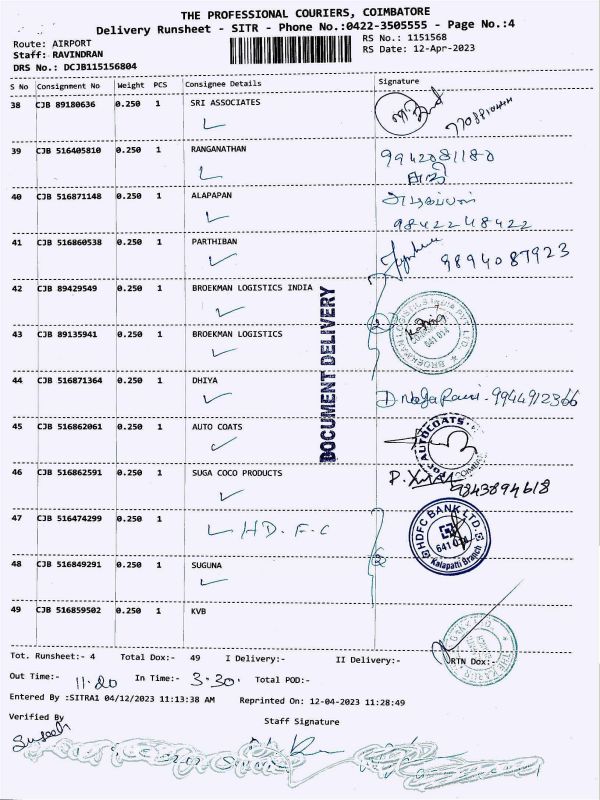 THE PROFESSIONAL COURIERS, COIMBATORE
Delivery Runsheet - SITR - Phone No.:0422-3505555 - Page No.:4
Route: AIRPORT
RS No.: 1151568
Staff: RAVINDRAN
RS Date: 12-Apr-2023
DRS No.: DCJB115156804
S No Consignment No Weight PCS Consignee Details Signature
38 CJB 89180636 0.250 1 SRI ASSOCIATES
39 CJB 516405810 0.250 1 RANGANATHAN
9942081180
40 CJB 516871148 0.250 1 ALAPAPAN
9842248422
41 CJB 516860538 0.250 1 PARTHIBAN
9894087923
42 CJB 89429549 0.250 1 BROEKMAN LOGISTICS INDIA
43 CJB 89135941 0.250 1 BROEKMAN LOGISTICS
2
BROEKMAN LOGISTICS INDIA PVT LTD.
641 014
DOCUMENT DELIVERY
44 CJB 516871364 0.250 1 DHIYA
9944912366
45 CJB 516862061 0.250 1 AUTO COATS
For AUTOCOATS
46 CJB 516862591 0.250 1 SUGA COCO PRODUCTS
9843894618
47 CJB 516474299 0.250 1 H D. F. C
HDFC BANK LTD.
641 014
Kalapatti Branch
48 CJB 516849291 0.250 1 SUGUNA
2
49 CJB 516859502 0.250 1 KVB
Tot. Runsheet:- 4 Total Dox:- 49 I Delivery:- II Delivery:- RTN Dox:-
Out Time:- 11.20 In Time:- 3.30. Total POD:-
Entered By :SITRA1 04/12/2023 11:13:38 AM Reprinted On: 12-04-2023 11:28:49
Verified By
Staff Signature